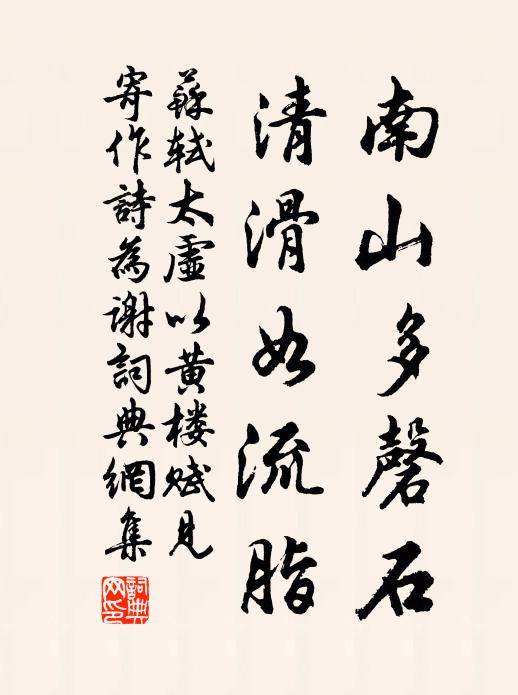 南山多磬石
清滑如流脂
蘇軾太虛以黃楼賦見
寄作詩為謝詞典網集
詞典
网印